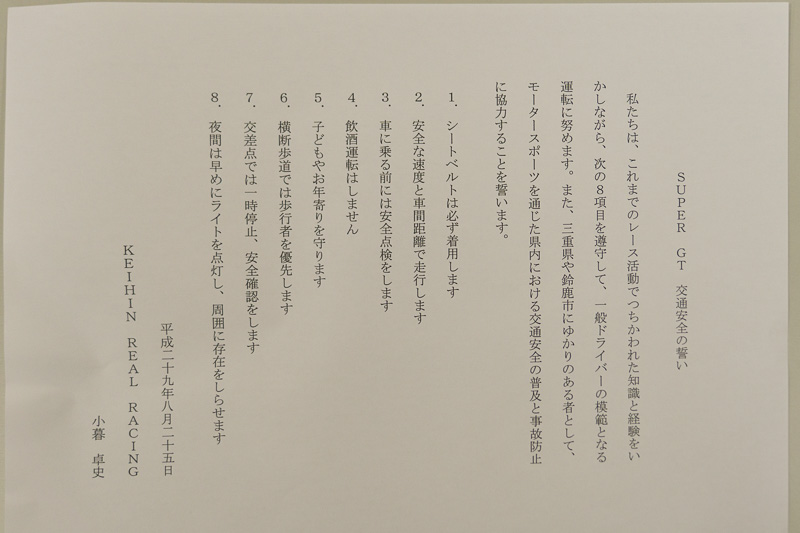 SUPER GT 交通安全の誓い
私たちは、これまでのレース活動でつちかわれた知識と経験をい
かしながら、次の８項目を遵守して、一般ドライバーの模範となる
運転に努めます。また、三重県や鈴鹿市にゆかりのある者として、
モータースポーツを通じた県内における交通安全の普及と事故防止
に協力することを誓います。
１．シートベルトは必ず着用します
２．安全な速度と車間距離で走行します
３．車に乗る前には安全点検をします
４．飲酒運転はしません
５．子どもやお年寄りを守ります
６．横断歩道では歩行者を優先します
７．交差点では一時停止、安全確認をします
８．夜間は早めにライトを点灯し、周囲に存在をしらせます
平成二十九年八月二十五日
KEIHIN REAL RACING
小暮 卓史